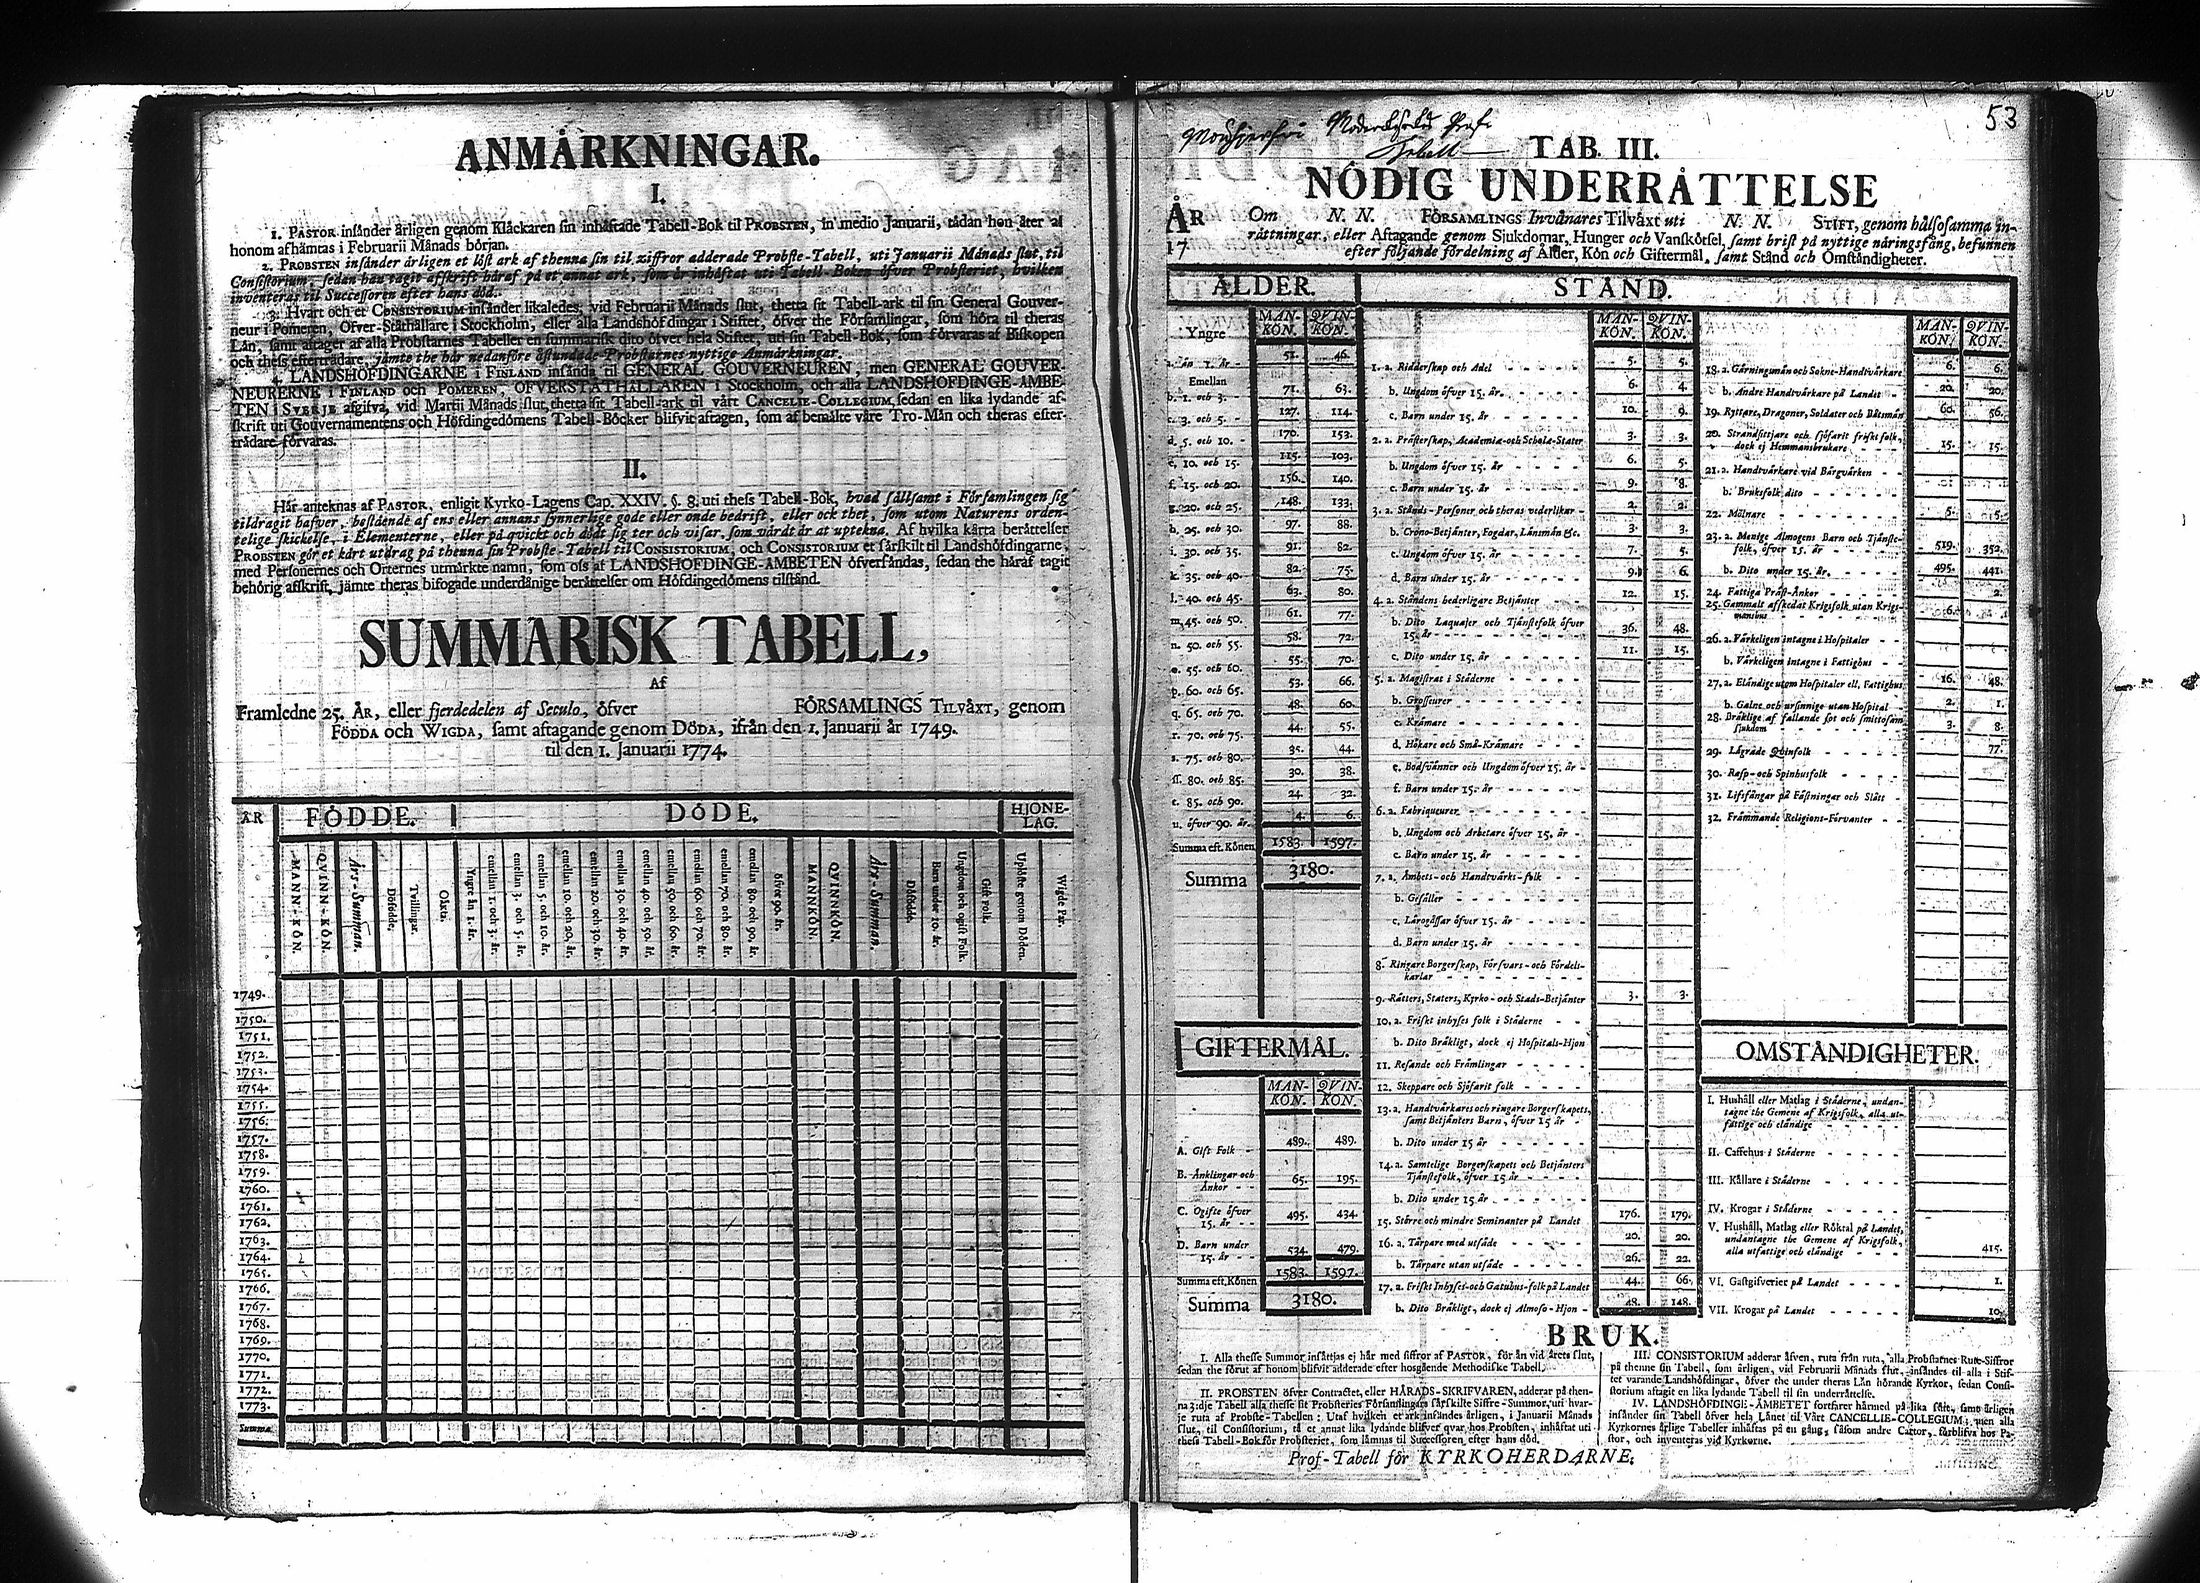 ANMÅRKNINGAR.
I.
1. PASTOR insånder årligen genom Klåckaren sin inhåftade Tabell-Bok til PROBSTEN, in medio Januarii, tådan hon åter af
honom afhåmtas i Februarii Månads början.
2. PROBSTEN insånder årligen et löst ark af thenna sin til ziffror adderade Probste-Tabell, uti Januarii Månads slut, til
Consistorium, sedan han tagit afskrift håraf på et annat ark, som år inhåftat uti Tabell-Boken öfver Probsteriet, hvilken
inventeras til Successoren efter hans död.
3. Hvart och et CONSISTORIUM insånder likaledes, vid Februarii Månads slut, thetta sit Tabell-ark til sin General Gouver-
neur i Pomeren, Öfver-Ståthållare i Stockholm, eller alla Landshöfdingar i Stifter, öfver the Församlingar, som höra til theras
Lån, samt aftager af alla Probstarnes Tabeller en summarisk dito öfver hela Stifter, uti sin Tabell-Bok, som förvaras af Biskopen
och thess eftertrådare, jåmte the hår nedanföre åstundade Probstarnes nyttige Anmårkningar.
4. LANDSHÖFDINGARNE i FINLAND insånda til GENERAL GOUVERNEUREN, men GENERAL GOUVER-
NEURERNE i FINLAND och POMEREN, ÖFVERSTÅTHÅLLAREN i Stockholm, och alla LANDSHÖFDINGE-ÅMBE-
TEN i SVERJE afgifva, vid Martii Månads slut, thetta sit Tabell-ark til vårt CANCELIE-COLLEGIUM, sedan en lika lydande af-
skrift uti Gouvernamentens och Höfdingedömens Tabell-Böcker blifvit aftagen, som af bemålte våre Tro-Mån och theras efter-
trådare förvaras.
II.
Hår anteknas af PASTOR, enligit Kyrko-Lagens Cap. XXIV. §. 8. uti thess Tabell-Bok, hvad sållsamt i Församlingen sig
tildragit hafver, bestående af ens eller annans synnerlige gode eller onde bedrift, eller ock thet, som utom Naturens orden-
telige skickelse, i Elementerne, eller på qvickt och dödt sig ter och visar, som vårdt år at uptekna. Af hvilka kårta beråttelser
PROBSTEN gör et kårt utdrag på thenna sin Probste-Tabell til CONSISTORIUM, och CONSISTORIUM et sårskilt til Landshöfdingarne,
med Personernes och Orternes utmårkte namn, som oss af LANDSHÖFDINGE-ÅMBETEN öfversåndas, sedan the håraf tagit
behörig afskrift, jåmte theras bifogade underdånige beråttelser om Höfdingedömens tilstånd.
SUMMARISK TABELL,
Af
Framledne 25. ÅR, eller fjerdedelen af Seculo, öfver FÖRSAMLINGS TILVÅXT, genom
FÖDDA och WIGDA, samt aftagande genom DÖDA, ifrån den 1. Januarii år 1749.
til den 1. Januarii 1774.
ÅR FÖDDE. DÖDE. HJONE-
LAG.
MANN-KÖN. QVINN-KÖN. Års-Summan. Döfödde. Tvillingar. Oäkta. Yngre ån 1. år. emellan 1. och 3. år. emellan 3. och 5. år. emellan 5. och 10. år. emellan 10. och 20. år. emellan 20. och 30. år. emellan 30. och 40. år. emellan 40. och 50. år. emellan 50. och 60. år. emellan 60. och 70. år. emellan 70. och 80. år. emellan 80. och 90. år. öfver 90. år. MANNKÖN. QVINNKÖN. Års-Summan. Döfödde. Barn under 10. år. Ungdom och ogift Folk. Gift Folk. Uplöste genom Döden. Wigde Par.
1749.
1750.
1751.
1752.
1753.
1754.
1755.
1756.
1757.
1758.
1759.
1760.
1761.
1762.
1763.
1764.
1765.
1766.
1767.
1768.
1769.
1770.
1771.
1772.
1773.
Summa
53
Tabell
TAB. III.
NÖDIG UNDERRÅTTELSE
ÅR 17
Om N. N. FÖRSAMLINGS Invånares Tilvåxt uti N. N. STIFT, genom hålsosamma in-
råttningar, eller Aftagande genom Sjukdomar, Hunger och Vanskötsel, samt brist på nyttige näringsfång, befunnen
efter följande fördelning af Ålder, Kön och Giftermål, samt Stånd och Omståndigheter.
ÅLDER.
Yngre MAN-KÖN. QVIN-KÖN.
a. ån 1. år 51. 46.
Emellan
b. 1. och 3. 71. 63.
c. 3. och 5. 127. 114.
d. 5. och 10. 170. 153.
e. 10. och 15. 115. 103.
f. 15. och 20. 156. 140.
g. 20. och 25. 148. 133.
h. 25. och 30. 97. 88.
i. 30. och 35. 91. 82.
k. 35. och 40. 82. 75.
l. 40. och 45. 63. 80.
m. 45. och 50. 61. 77.
n. 50. och 55. 58. 72.
o. 55. och 60. 55. 70.
p. 60. och 65. 53. 66.
q. 65. och 70. 48. 60.
r. 70. och 75. 44. 55.
s. 75. och 80. 35. 44.
ss. 80. och 85. 30. 38.
t. 85. och 90. 24. 32.
u. öfver 90. år. 4. 6.
Summa eft. Könen 1583. 1597.
Summa 3180.
GIFTERMÅL.
MAN-KÖN. QVIN-KÖN.
A. Gift Folk 489. 489.
B. Änklingar och
Änkor 65. 195.
C. Ogifte öfver
15. år 495. 434.
D. Barn under
15. år 534. 479.
Summa eft. Könen 1583. 1597.
Summa 3180.
STÅND.
MAN-KÖN. QVIN-KÖN.
1. a. Ridderskap och Adel 5. 5.
b. Ungdom öfver 15. år. 6. 4.
c. Barn under 15. år 10. 9.
2. a. Pråsterskap, Academiæ-och Scholæ-Stater 3. 3.
b. Ungdom öfver 15. år 6. 5.
c. Barn under 15. år 9. 8.
3. a. Stånds-Personer och theras vederlikar 2. 2.
b. Crono-Betjånter, Fogdar, Lånsmån &c. 3. 3.
c. Ungdom öfver 15. år 7. 5.
d. Barn under 15. år 9. 6.
4. a. Ståndens hederligare Betjånter 12. 15.
b. Dito Laquajer och Tjånstefolk öfver
15. år 36. 48.
c. Dito under 15. år 11. 15.
5. a. Magistrat i Ståderne
b. Grosseurer
c. Kråmare
d. Hökare och Små-Kråmare
e. Bodsvånner och Ungdom öfver 15. år
f. Barn under 15. år
6. a. Fabriqueurer
b. Ungdom och Arbetare öfver 15. år
c. Barn under 15. år
7. a. Åmbets-och Handtvårks-folk
b. Gesåller
c. Lårogåssar öfver 15. år
d. Barn under 15. år
8. Ringare Borgerskap, Försvars-och Fördels-
karlar
9. Råtters, Staters, Kyrko-och Stads-Betjånter 3. 3.
10. a. Friskt inhyses folk i Ståderne
b. Dito Bråkligt, dock ej Hospitals-Hjon
11. Resande och Fråmlingar
12. Skeppare och Sjöfarit folk
13. a. Handtvårkares och ringare Borgerskapets,
samt Betjånters Barn, öfver 15 år
b. Dito under 15 år
14. a. Samtelige Borgerskapets och Betjånters
Tjånstefolk, öfver 15 år
b. Dito under 15 år
15. Större och mindre Seminanter på Landet 176. 179.
16. a. Tårpare med utsåde 20. 20.
b. Tårpare utan utsåde 26. 22.
17. a. Friskt Inhyses-och Gatuhus-folk på Landet 44. 66.
b. Dito Bråkligt, dock ej Almoso-Hjon 48. 148.
MAN-KÖN. QVIN-KÖN.
18. a. Gårningsmån och Sokne-Handtvårkare 6. 6.
b. Andre Handtvårkare på Landet 20. 20.
19. Ryttare, Dragoner, Soldater och Båtsmån 60. 56.
20. Strandsittjare och sjöfarit friskt folk,
dock ej Hemmansbrukare 15. 15.
21. a. Handtvårkare vid Bårgvårken
b. Bruksfolk dito
22. Mölnare 5. 5.
23. a. Menige Almogens Barn och Tjånste-
folk, öfver 15. år 519. 352.
b. Dito under 15. år. 495. 441.
24. Fattiga Pråst-Ånkor 2.
25. Gammalt afskedat Krigsfolk utan Krigs-
mansbus 6.
26. a. Vårkeligen intagne i Hospitaler
b. Vårkeligen intagne i Fattighus
27. a. Elåndige utom Hospitaler ell. Fattighus 16. 48.
b. Galne och ursinnige utan Hospital 2. 1.
28. Bråklige af fallande sot och smittosam
sjukdom 3. 8.
29. Lågrade Qvinfolk 77.
30. Rasp-och Spinhusfolk
31. Lifsfångar på Fåstningar och Slått
32. Fråmmande Religions-Förvanter
OMSTÅNDIGHETER.
I. Hushåll eller Matlag i Ståderne, undan-
tagne the Gemene af Krigsfolk, alla ut-
fattige och elåndige
II. Caffehus i Ståderne
III. Kållare i Ståderne
IV. Krogar i Ståderne
V. Hushåll, Matlag eller Röktal på Landet,
undantagne the Gemene af Krigsfolk,
alla utfattige och elåndige 415.
VI. Gåstgifverier på Landet 1.
VII. Krogar på Landet 10.
BRUK.
I. Alla thesse Summor insåttjas ej hår med siffror af PASTOR, för ån vid årets slut,
sedan the förut af honom blifvit adderade efter hosgående Methodiske Tabell.
II. PROBSTEN öfver Contractet, eller HÅRADS-SKRIFVAREN, adderar på then-
na 3:dje Tabell alla thesse sit Probsteries Församlingars sårskilte Siffre-Summor, uti hvar-
je ruta af Probste-Tabellen: Utaf hvilken et ark insåndes årligen, i Januarii Månads
slut, til Consistorium, tå et annat lika lydande blifver qvar hos Probsten, inhåftat uti
thess Tabell-Bok för Probsteriet, som låmnas til Successoren efter hans död.
III. CONSISTORIUM adderar åfven, ruta från ruta, alla Probstarnes Rute-Siffror
på thenne sin Tabell, som årligen, vid Februarii Månads slut, insåndes til alla i Stif-
tet varande Landshöfdingar, öfver the under theras Lån hörande Kyrkor, sedan Consi-
storium aftagit en lika lydande Tabell til sin underråttelse.
IV. LANDSHÖFDINGE-ÅMBETET fortfarer hårmed på lika såtte, samt årligen
insånder sin Tabell öfver hela Lånet til Vårt CANCELLIE-COLLEGIUM; men alla
Kyrkornes årlige Tabeller inhåftas på en gång, såsom andre Cartor, sårblifva hos Pa-
stor, och inventeras vid Kyrkorne.
Prof-Tabell för KYRKOHERDARNE;